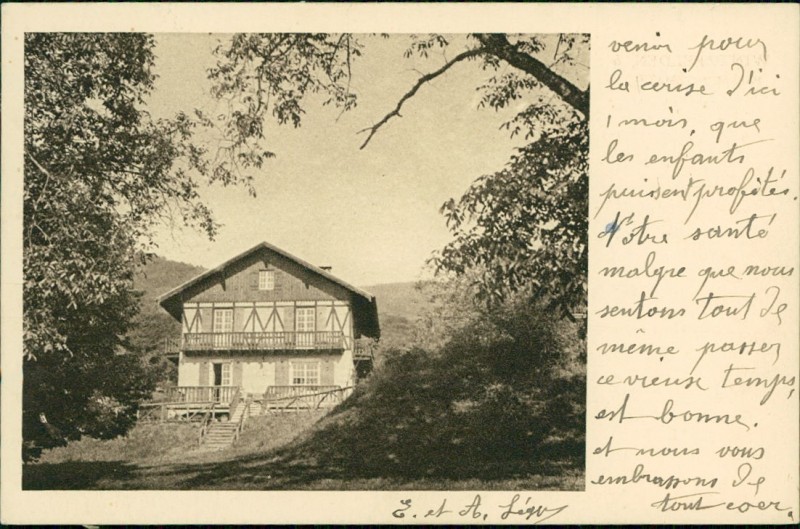 venir pour
la cerise d'ici
1 mois, que
les enfants
puissent profités.
Notre santé
malgre que nous
sentons tout de
même passer
ce vieux temps,
est bonne.
et nous vous
embrassons de
tout coer.
E. et A.